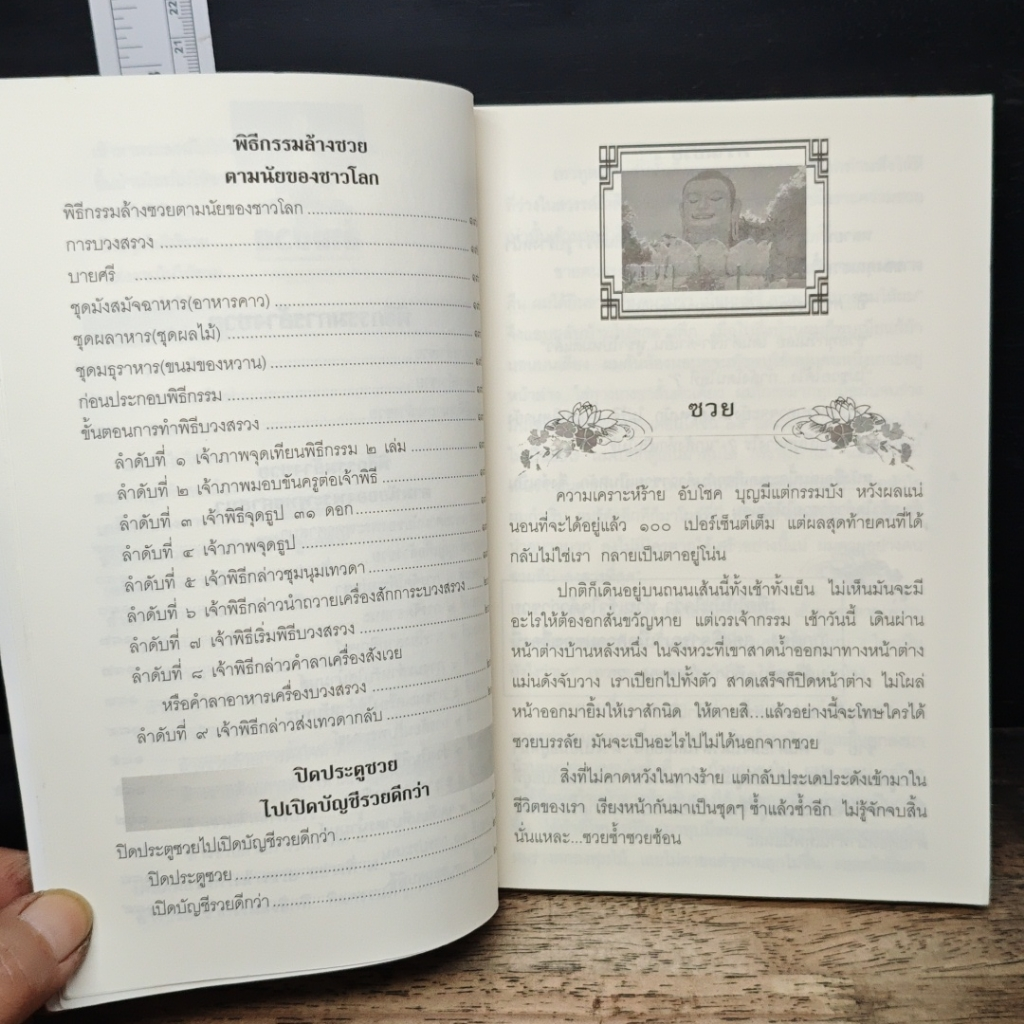 22
21
พิธีกรรมล้างซวย
ตามนัยของชาวโลก
พิธีกรรมล้างซวยตามนัยของชาวโลก
การบวงสรวง
บายศรี
ชุดมังสมัจฉาหาร(อาหารคาว)
ชุดผลาหาร(ชุดผลไม้)
ชุดมธุราหาร(ขนมของหวาน)
ก่อนประกอบพิธีกรรม
ขั้นตอนการทำพิธีบวงสรวง
ลำดับที่ ๑ เจ้าภาพจุดเทียนพิธีกรรม ๒ เล่ม
ลำดับที่ ๒ เจ้าภาพมอบขันครูต่อเจ้าพิธี
ลำดับที่ ๓ เจ้าพิธีจุดธูป ๓๑ ดอก
ลำดับที่ ๔ เจ้าภาพจุดธูป
ลำดับที่ ๕ เจ้าพิธีกล่าวชุมนุมเทวดา
ลำดับที่ ๖ เจ้าพิธีกล่าวนำถวายเครื่องสักการะบวงสรวง
ลำดับที่ ๗ เจ้าพิธีเริ่มพิธีบวงสรวง
ลำดับที่ ๘ เจ้าพิธีกล่าวคำลาเครื่องสังเวย
หรือคำลาอาหารเครื่องบวงสรวง
ลำดับที่ ๙ เจ้าพิธีกล่าวส่งเทวดากลับ
ปิดประตูซวย
ไปเปิดบัญชีรวยดีกว่า
ปิดประตูซวยไปเปิดบัญชีรวยดีกว่า
ปิดประตูซวย
เปิดบัญชีรวยดีกว่า
ซวย
ความเคราะห์ร้าย อับโชค บุญมีแต่กรรมบัง หวังผลแน่
นอนที่จะได้อยู่แล้ว ๑๐๐ เปอร์เซ็นต์เต็ม แต่ผลสุดท้ายคนที่ได้
กลับไม่ใช่เรา กลายเป็นตาอยู่โน่น
ปกติก็เดินอยู่บนถนนเส้นนี้ทั้งเช้าทั้งเย็น ไม่เห็นมันจะมี
อะไรให้ต้องอกสั่นขวัญหาย แต่เวรเจ้ากรรม เช้าวันนี้ เดินผ่าน
หน้าต่างบ้านหลังหนึ่ง ในจังหวะที่เขาสาดน้ำออกมาทางหน้าต่าง
แม่นดังจับวาง เราเปียกไปทั้งตัว สาดเสร็จก็ปิดหน้าต่าง ไม่โผล่
หน้าออกมายิ้มให้เราสักนิด ให้ตายสิ...แล้วอย่างนี้จะโทษใครได้
ซวยบรรลัย มันจะเป็นอะไรไปไม่ได้นอกจากซวย
สิ่งที่ไม่คาดหวังในทางร้าย แต่กลับประเดประดังเข้ามาใน
ชีวิตของเรา เรียงหน้ากันมาเป็นชุดๆ ซ้ำแล้วซ้ำอีก ไม่รู้จักจบสิ้น
นั่นแหละ...ซวยซ้ำซวยซ้อน